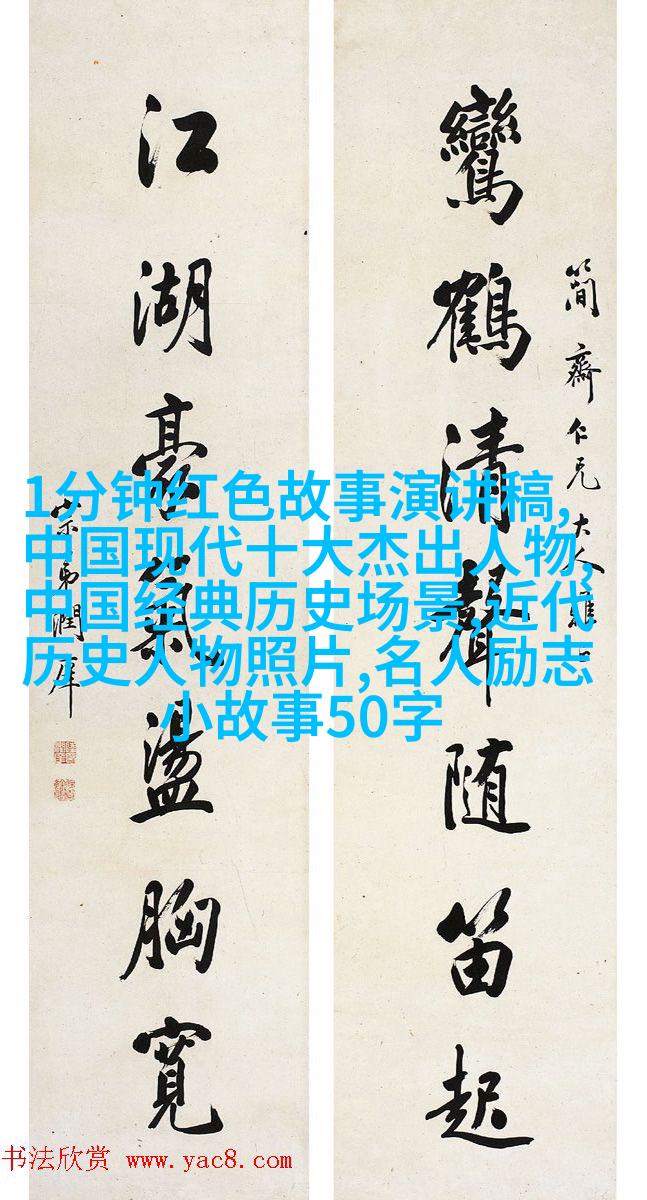 鸞鶴清聲随笛起
簡齋仁兄大人雅
江湖豪氣盪胸寬
宗弟潤庠
1分钟红色故事演讲稿,
中国现代十大杰出人物,
中国经典历史场景,近代
历史人物照片,名人励志
小故事50字
书法欣赏 www.yac8.com